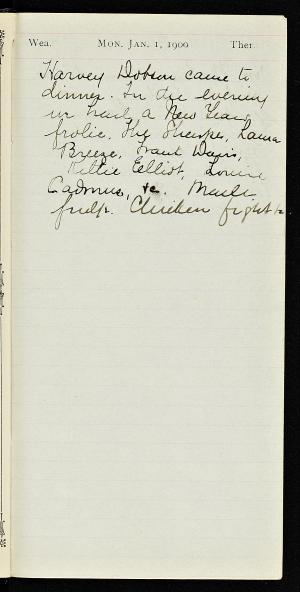 Wea. Mon. Jan. 1, 1900 Ther.
Harvey Dobson came to
dinner. In the evening
we had a New Year
frolic. The Sharps, Laura
Breeze, Frank
Kittie Elliot, Louise
Cadmus, &c. Made
fudge. Chicken fight